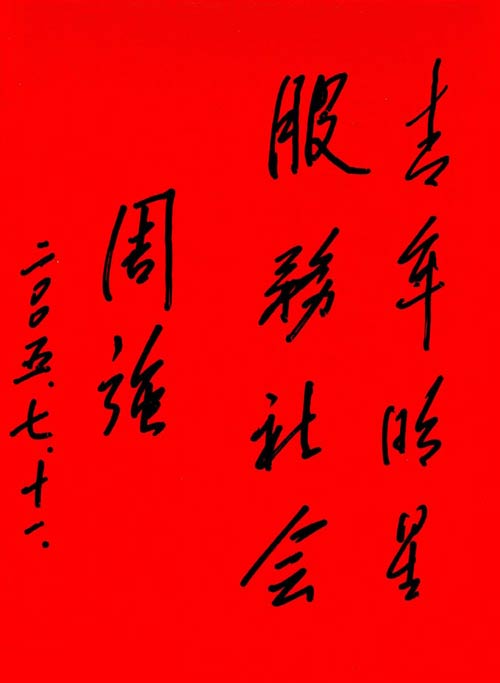 青年明星
服務社会
周強
二〇〇五.七.十一.